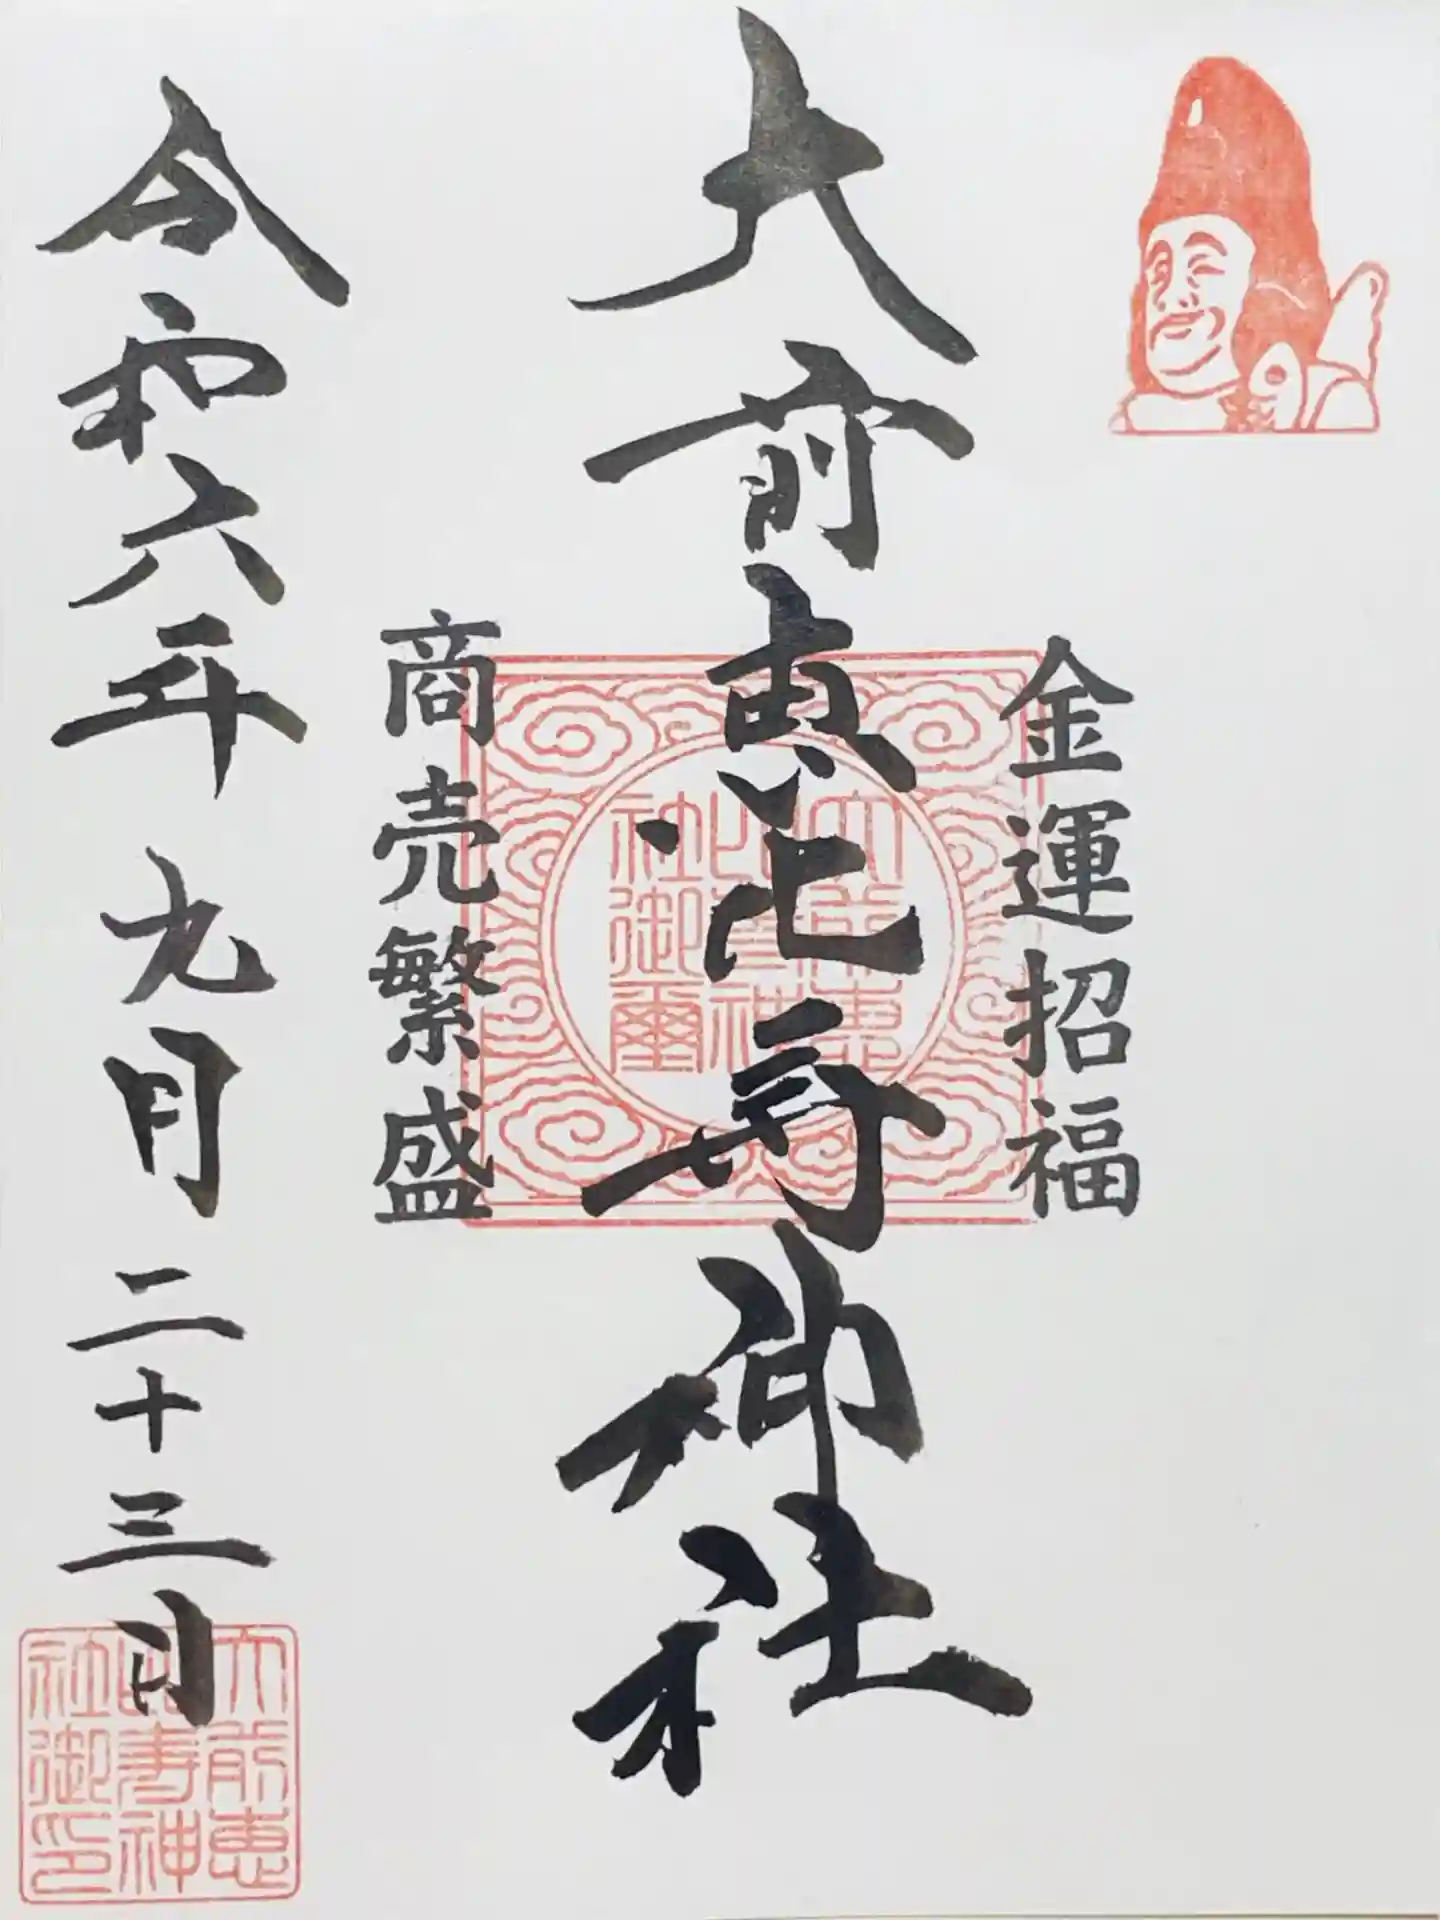 金運招福
大前恵比寿神社
商売繁盛
令和六年九月二十三日
大前恵
比寿神
社御璽
大前恵
比寿神
社御印